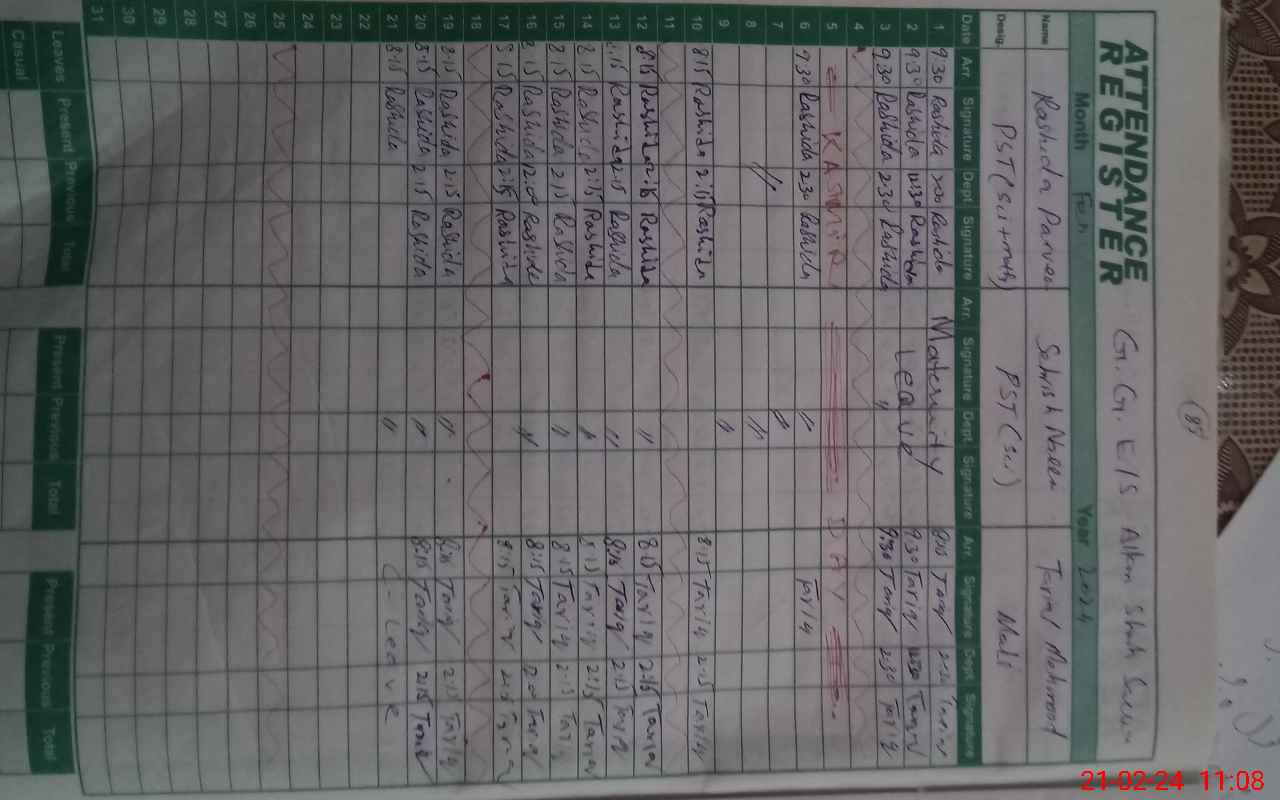 (87)
ATTENDANCE REGISTER G.G. E/S
Month Feb Year 2024
Name Rashida Parveen Sehrish Tariq Mehmood
Desig. PST (Sci+math) PST (Sci) Mali
Date Arr. Signature Dept Signature Arr. Signature Dept Signature Arr. Signature Dept Signature
1 9:30 Rashida Rashida Maternity Tariq
2 9:30 Rashida 12:30 Rashida Leave 9:30 Tariq 12:30 Tariq
3 9:30 Rashida 2:30 Rashida " 9:30 Tariq 2:30 Tariq
4
5 KASHMIR DAY
6 9:30 Rashida 2:30 Rashida " Tariq
7 "
8 " "
9 "
10 8:15 Rashida 2:15 Rashida 8:15 Tariq 2:15 Tariq
11
12 8:15 Rashida 2:15 Rashida " 8:15 Tariq 2:15 Tariq
13 8:15 Rashida 2:15 Rashida " 8:15 Tariq 2:15 Tariq
14 8:15 Rashida 2:15 Rashida " 8:15 Tariq 2:15 Tariq
15 8:15 Rashida 2:15 Rashida " 8:15 Tariq 2:15 Tariq
16 8:15 Rashida 12:00 Rashida " 8:15 Tariq 12:00 Tariq
17 8:15 Rashida 2:15 Rashida 8:15 Tariq 2:15 Tariq
18
19 8:15 Rashida 2:15 Rashida " 8:15 Tariq 2:15 Tariq
20 8:15 Rashida 2:15 Rashida " 8:15 Tariq 2:15 Tariq
21 8:15 Rashida " C-Leave
22
23
24
25
26
27
28
29
30
31
Leaves Present Previous Total Present Previous Total Present Previous Total
Casual
21-02-24 11:08